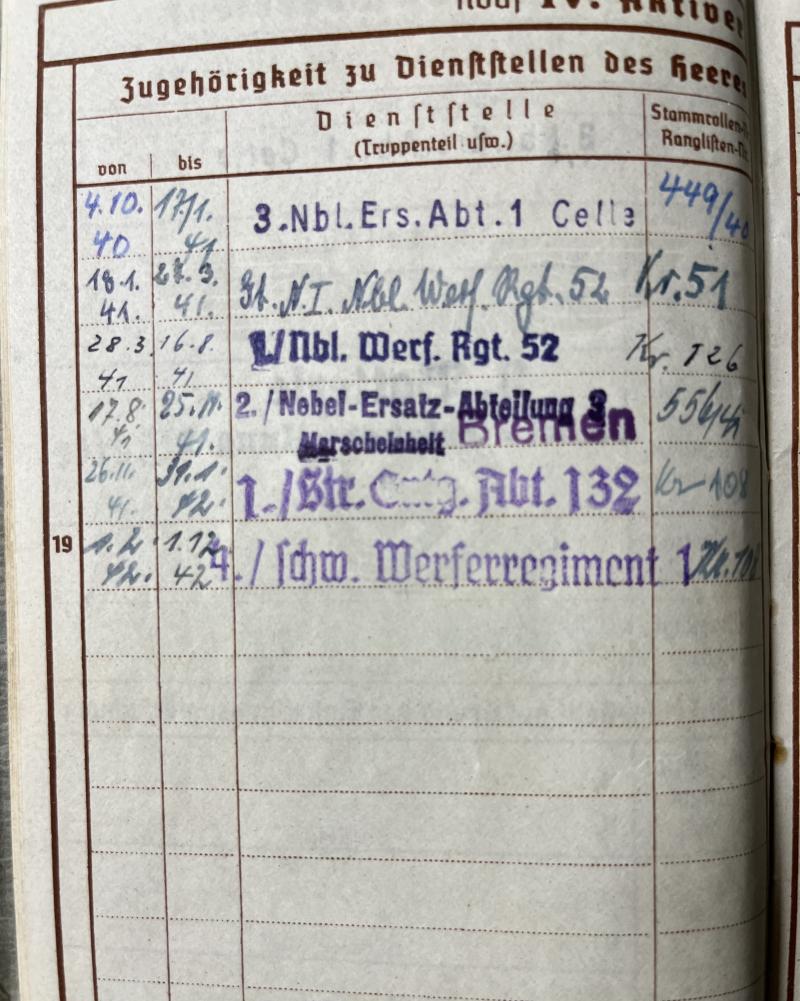 IV. Aktiver
Zugehörigkeit zu Dienststellen des Heeres
von bis Dienststelle Stammrollen-
(Truppenteil usw.) Ranglisten-
4.10. 17/1. 3.Nbl.Ers.Abt.1 Celle 449/40
40 41
18.1. 27.3. St. N.I. Nbl. Werf. Rgt. 52 Kr. 51
41. 41.
28.3. 16.8. 1/Nbl. Werf. Rgt. 52 Kr. 126
41 41
17.8. 25.11. 2./Nebel-Ersatz-Abteilung 3
41 41. Marscheinheit Bremen
26.11. 31.1. 1./Str. Abt. 132 Kr 108
41. 42.
19 1.2. 1.12 4./schw. Werferregiment 1
42. 42